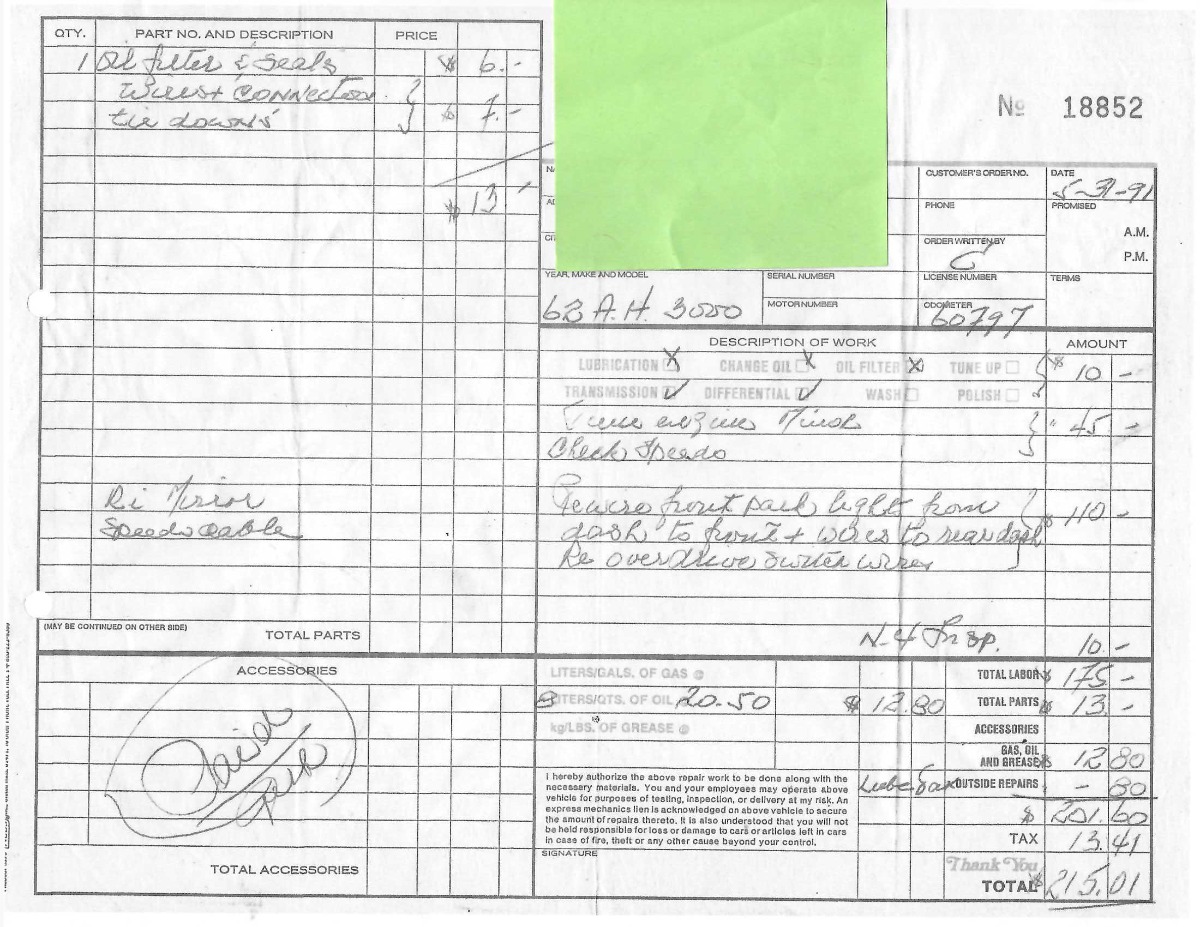 QTY. PART NO. AND DESCRIPTION PRICE
1 Oil filter & Seals $ 6.-
Wires + CONNECTORS
tie downs $ 7.-
$ 13 -
No 18852
CUSTOMER'S ORDER NO. DATE
5-31-91
PHONE PROMISED
A.M.
ORDER WRITTEN BY P.M.
C
YEAR, MAKE AND MODEL SERIAL NUMBER LICENSE NUMBER TERMS
62 A.H. 3000 MOTOR NUMBER ODOMETER
60797
DESCRIPTION OF WORK AMOUNT
LUBRICATION X CHANGE OIL X OIL FILTER X TUNE UP $ 10 -
TRANSMISSION ✓ DIFFERENTIAL ✓ WASH POLISH
Tune engine Minor " 45 -
Check Speedo
Mirror front park light from $ 110 -
Speedo cable dash to front + wires to rear dash
Re overdrive switch wires
(MAY BE CONTINUED ON OTHER SIDE)
TOTAL PARTS
N.Y Insp. 10.-
ACCESSORIES
LITERS/GALS. OF GAS @ TOTAL LABOR $ 175 -
8 LITERS/QTS. OF OIL 20-50 $ 12.80 TOTAL PARTS $ 13 -
kg/LBS. OF GREASE @ ACCESSORIES
GAS, OIL AND GREASE $ 12 80
Lube Tax OUTSIDE REPAIRS - 80
$ 201.60
TAX 13.41
I hereby authorize the above repair work to be done along with the
necessary materials. You and your employees may operate above
vehicle for purposes of testing, inspection, or delivery at my risk. An
express mechanics lien is acknowledged on above vehicle to secure
the amount of repairs thereto. It is also understood that you will not
be held responsible for loss or damage to cars or articles left in cars
in case of fire, theft or any other cause beyond your control.
SIGNATURE
TOTAL ACCESSORIES
Thank You
TOTAL $ 215.01